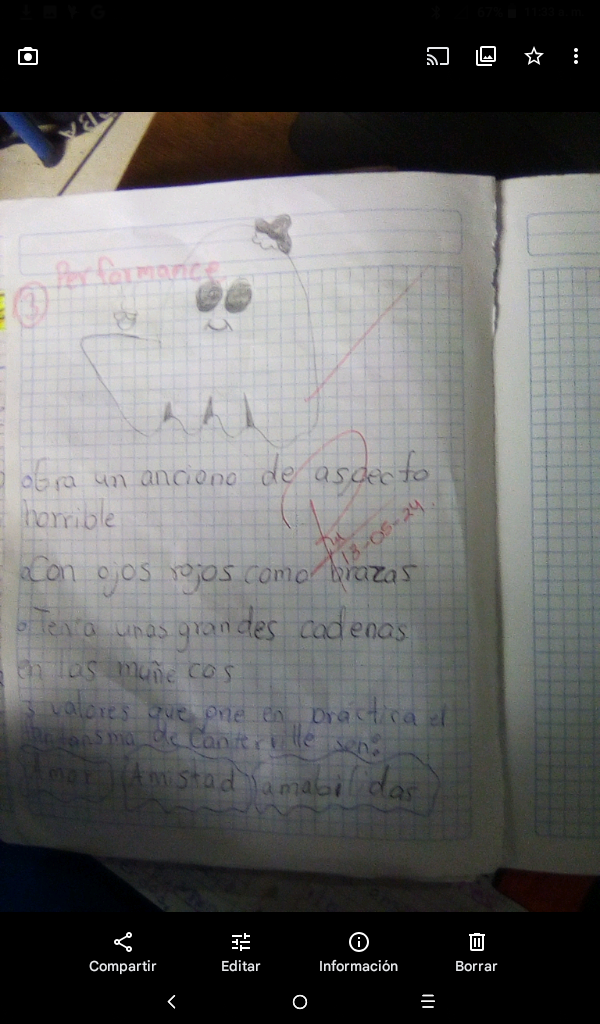 Performance
3
oEra un anciano de aspecto
horrible
oCon ojos rojos como brazas
13-05-24
oTenia unas grandes cadenas
en las muñe cas
3 valores que pone en practica el
fantansma de Canterville son:
Amor Amistad amabilidas
Compartir
Editar
Información
Borrar